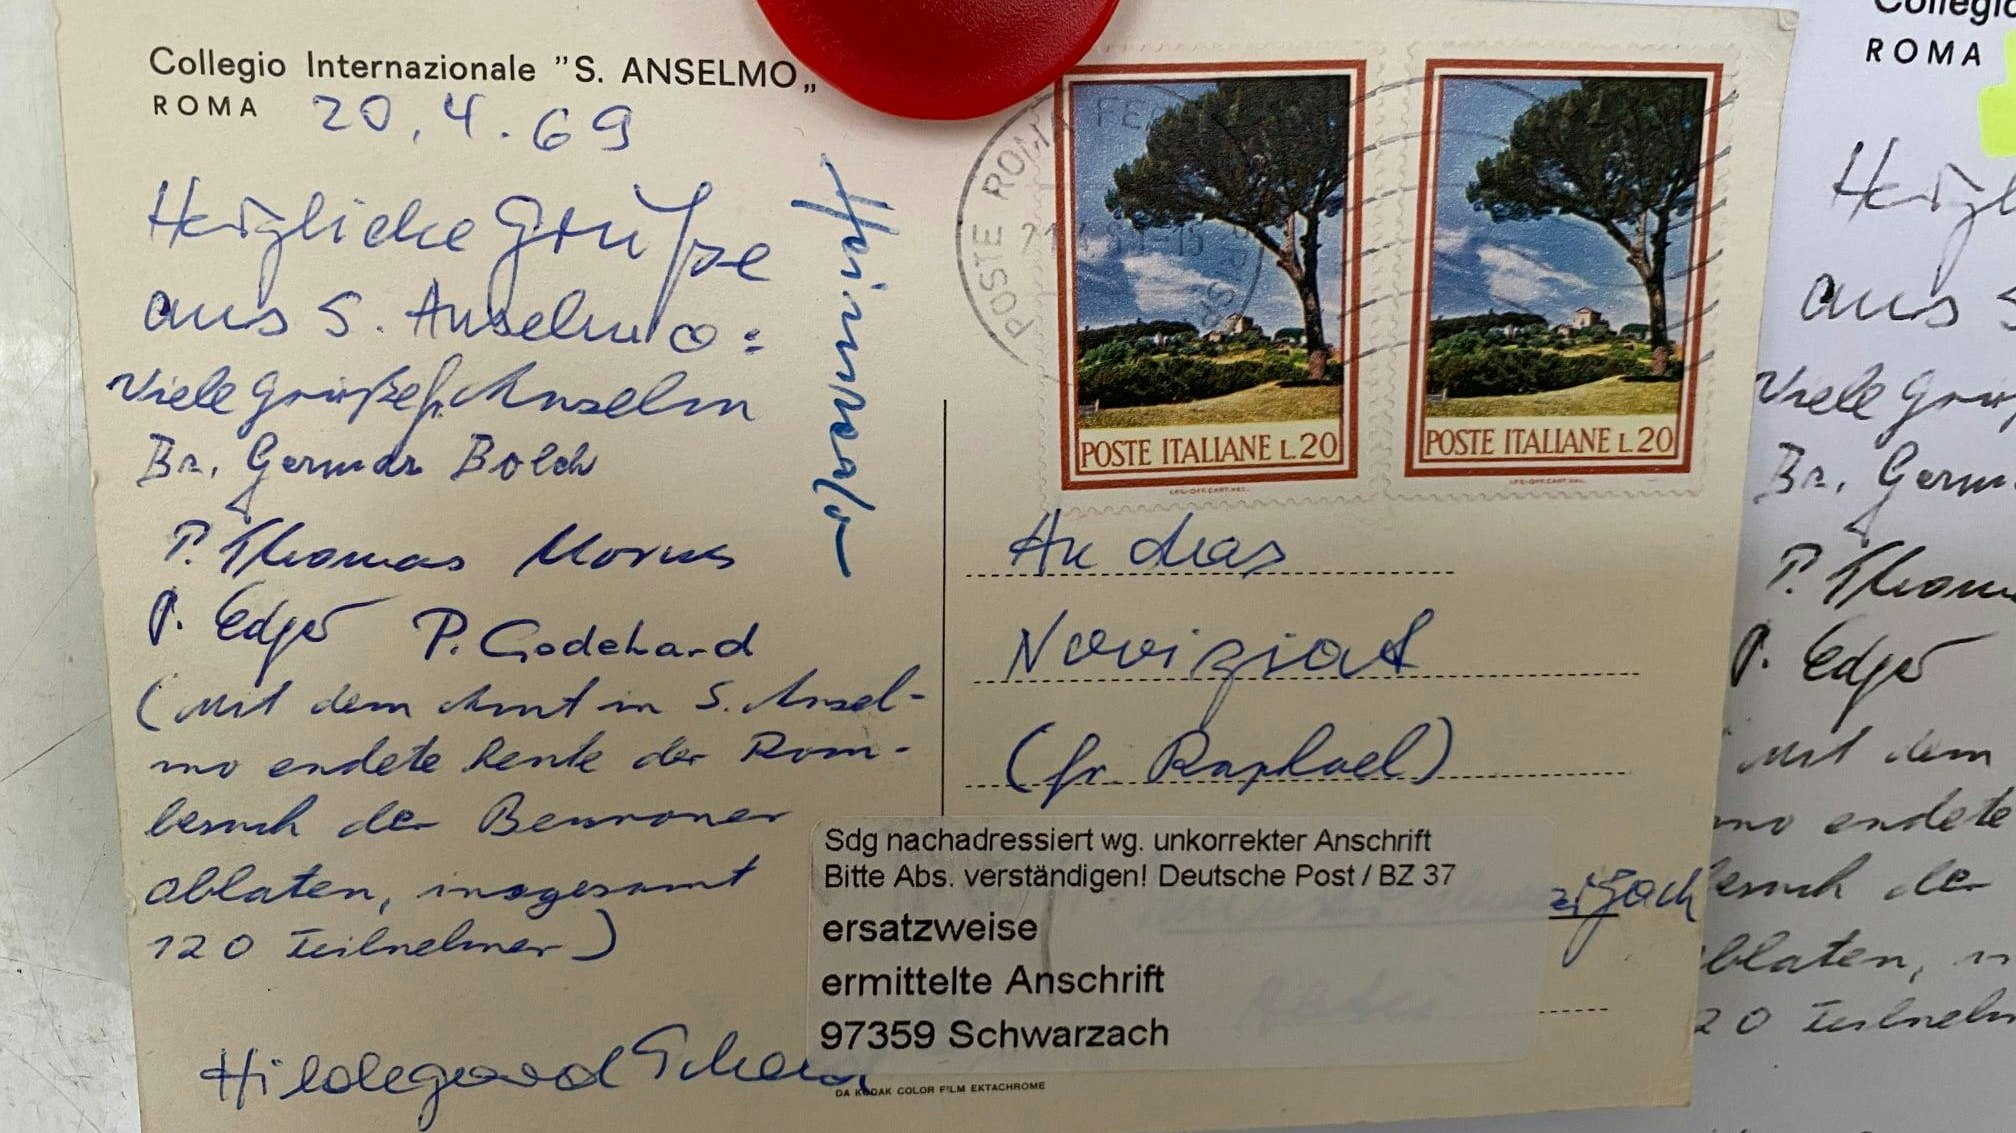 Collegio Internazionale "S. ANSELMO„
ROMA 20.4.69
Herzliche Grüße
aus S. Anselmo:
Viele Grüße fr. Anselm
Br. German Bolch
P. Thomas Morus
P. Edgar P. Godehard
(Mit dem Amt in S. Ansel-
mo endete heute der Rom-
besuch der Beuroner
oblaten, insgesamt
120 Teilnehmer)
Hildegard
POSTE ROMA
POSTE ITALIANE L.20
POSTE ITALIANE L.20
An das
Noviziat
(fr. Raphael)
Sdg nachadressiert wg. unkorrekter Anschrift
Bitte Abs. verständigen! Deutsche Post / BZ 37
ersatzweise
ermittelte Anschrift
97359 Schwarzach
Abtei
DA KODAK COLOR FILM EKTACHROME
Collegio
ROMA
aus S
Viele
Br. Germ
P. Thom
P. Edgar
Mit dem
mo endete
der
oblaten,
20 Teilnehm